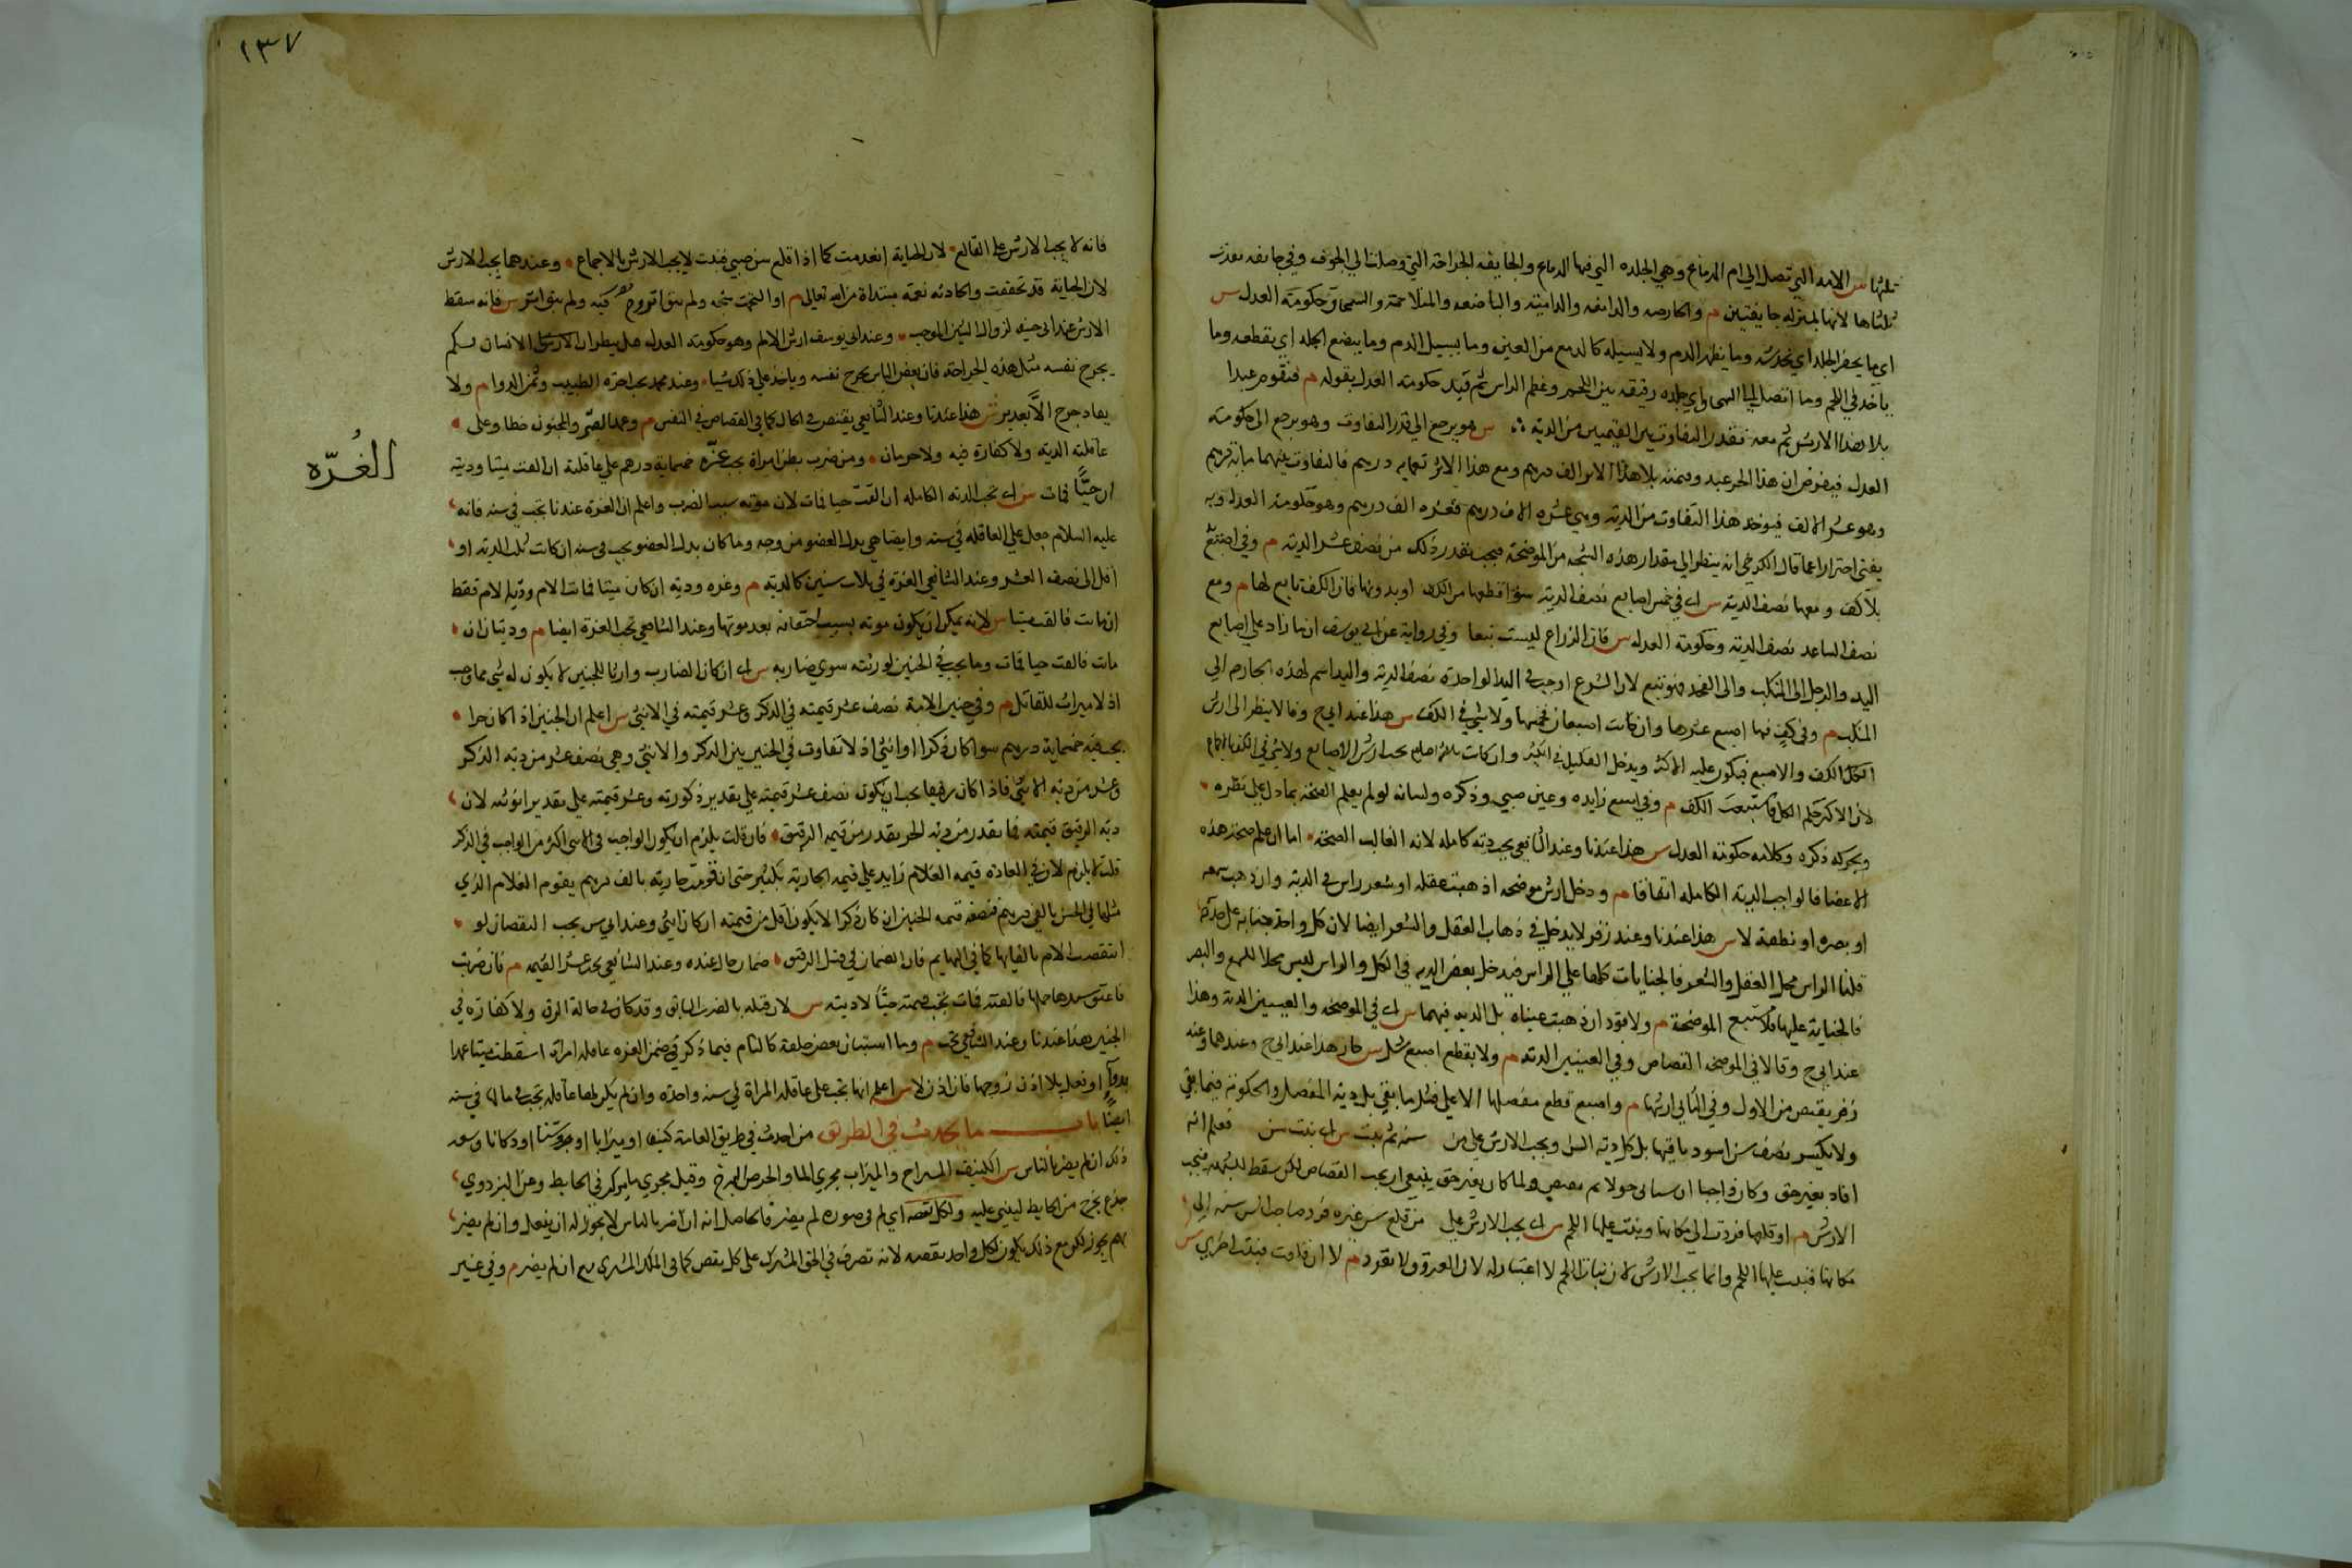 ثلثها س الامه التي تصل الى ام الدماغ وهي الجلده التي فيها الدماغ والجايفه الجراحة التي وصلت الى الجوف وفي جايفه نفذت
ثلثاها لانها بمنزله جايفتين م والحارصه والدامعه والداميه والباضعه والمتلاحمة والسمحاق حكومة العدل س
اي ما يحرص الجلد اي يخدشه وما يظهر الدم ولا يسيله كالدمع من العين وما يسيل الدم وما يبضع الجلد اي يقطعه وما
ياخذ في اللحم وما اتصل الى السمحاق اي جلده رقيقه بين اللحم وعظم الراس ثم فسر حكومة العدل بقوله م فيقوم عبدا
بلا هذا الاثر ثم معه فقدر التفاوت بين القيمتين من الديه س هو يرجع الى قدر التفاوت وهو يرجع الى حكومة
العدل فيفرض ان هذا الحر عبد وقيمته بلا هذا الاثر الف درهم ومع هذا الاثر تسعمايه درهم فالتفاوت بينهما مايه درهم
وهو عشر الالف فيوخذ هذا التفاوت من الديه وهي عشره الاف درهم فعشره الف درهم وهو حكومة العدل وبه
يفتى احترازا عما قال الكرخي انه ينظر الى مقدار هذه الشجه من الموضحة فيجب بقدر ذلك من نصف عشر الدية م وفي اصبع
بلا كف ومعها نصف الدية س اي في خمس اصابع نصف الدية سواء قطعها مع الكف او بدونها فان الكف تابع لها م ومع
نصف الساعد نصف الدية وحكومة العدل س فان الذراع ليست تبعا وفي رواية عن ابي يوسف ان ما زاد على اصابع
اليد والرجل الى المنكب والى الفخذ فهو تبع لان الشرع اوجب في اليد الواحدة نصف الدية واليد اسم لهذه الجارحه الى
المنكب م وفي كف فيها اصبع عشرها وان كانت اصبعان فخمسها ولا شي في الكف س هذا عند ابي ح وقالا ينظر الى ارش
الكف والاصبع فيكون عليه الاكثر ويدخل القليل في الكثير وان كانت ثلاثة اصابع يجب ارش الاصابع ولا شي في الكف بالاجماع
لان للاكثر حكم الكل فاستتبعت الكف م وفي اصبع زايده وعين صبي وذكره ولسانه لو لم يعلم الصحة بما دل على نظره
وبحركه ذكره وكلامه حكومة العدل س هذا عندنا وعند الشافعي يجب ديه كامله لانه الغالب الصحة اما ان علم صحة هذه
الاعضا فالواجب الدية الكامله اتفاقا م ودخل ارش موضحه اذهبت عقله او شعر راس في الدية وان ذهب سمعه
او بصره او نطقه لا س هذا عندنا وعند زفر لا يدخل في ذهاب العقل والشعر ايضا لان كل واحد جناية على حدة
قلنا الراس محل العقل والشعر فالجنايات كلها على الراس فيدخل بعض الديه في الكل والراس ليس محلا للسمع والبصر
فالجناية عليها لا تستتبع الموضحة م ولا قود ان ذهبت عيناه بل الديه فيهما س اي في الموضحه والعينين الدية وهذا
عند ابي ح وقالا في الموضحه القصاص وفي العينين الديه م ولا يقطع اصبع شل س جاره هذا عند ابي ح وعندهما وعند
زفر يقتص من الاول وفي الثاني ارشها م واصبع قطع مفصلها الاعلى فشل ما بقي بل دية المفصل والحكومة فيما بقي
ولا يكسر نصف سن اسود باقيها بل كل دية السن ويجب الارش على من سنه ثم نبت س اي نبت سن فعلم انه
افاد بغير حق وكان واجبا ان يستانى حولا ثم يقتص ولما كان بغير حق ينبغي ان يجب القصاص لكن سقط للشبهة فيجب
الارش م او قلعها فردت الى مكانها ونبت عليها اللحم س اي يجب الارش على من قلع سن غيره فرد صاحب السن سنه الى
مكانها فنبت عليها اللحم وانما يجب الارش لان نبات اللحم لا اعتبار له لان العروق لا تعود م لا ان قلعت فنبتت اخرى س
١٣٧
فانه لا يجب الارش على القالع لان الجناية انعدمت كما اذا قلع سن صبي فنبت لا يجب الارش بالاجماع وعندهما يجب الارش
لان الجناية قد تحققت والحادثه نعمة مبتداة من الله تعالى م او التحمت شجه ولم يبق اثر س فانه سقط
الارش عند ابي حنيفه لزوال الشين الموجب وعند ابي يوسف ارش الالم وهو حكومة العدل
بجرح نفسه مثل هذه الجراحة فان بعض الناس يجرح نفسه وياخذ على ذلك شيا وعند محمد يجب اجرة الطبيب وثمن الدوا م ولا
يقاد جرح الا بعد برء س هذا عندنا وعند الشافعي يقتص في الحال كما في القصاص في النفس م وعمد الصبي والمجنون خطا وعلى
عاقلته الدية ولا كفارة فيه ولا حرمان ومن ضرب بطن امراة يجب غرة خمسماية درهم على عاقلته ان القت ميتا ودية
الغُرّه
ان حيًّا فمات س اي تجب الديه الكامله ان القت حيا فمات لان موته سبب الضرب واعلم ان الغرة عندنا تجب في سنه فانه
عليه السلام جعل على العاقله في سنه وايضا هي بدل العضو من وجه وما كان بدل العضو يجب في سنه ان كانت ثلث الديه او
اقل الى نصف العشر وعند الشافعي الغرة في ثلاث سنين كالديه م وغره وديه ان كان ميتا فماتت الام ودية الام فقط
ان ماتت فالقت ميتا س لانه يمكن ان يكون موته بسبب اختناقه بعد موتها وعند الشافعي تجب الغرة ايضا م وديتان ان
مات فالقت حيا فمات وما يجب في الجنين لورثته سوى ضاربه س اي ان كان الضارب وارثا للجنين لا يكون له شي مما وجب
اذ لا ميراث للقاتل م وفي جنين الامة نصف عشر قيمته في الذكر وعشر قيمته في الانثى س اعلم ان الجنين اذا كان حرا
يجب فيه خمسماية درهم سوا كان ذكرا او انثى اذ لا تفاوت في الجنين بين الذكر والانثى وهي نصف عشر من دية الذكر
وعشر من دية الانثى فاذا كان رقيقا يجب ان يكون نصف عشر قيمته على تقدير ذكورته وعشر قيمته على تقدير انوثته لان
دية الرقيق قيمته فما يقدر من دية الحر يقدر من قيمة الرقيق فان قلت يلزم ان يكون الواجب في الانثى اكثر من الواجب في الذكر
قلت لا يلزم لان في العادة قيمة الغلام زايد على قيمة الجارية بكثير حتى ان قومت جارية بالف درهم يقوم الغلام الذي
مثلها في الحسن بالفي درهم فنصف قيمة الجنين ان كان ذكرا لا يكون اقل من قيمته ان كان انثى وعند ابي س يجب النقصان لو
انتقصت الام بالقايها كما في البهايم فان الضمان في قتل الرقيق ضمان مال عنده وعند الشافعي يجب عشر القيمه م فان ضربت
فاعتق سيدها حملها فالقته فمات تجب قيمته حيًّا لا ديته س لان قتله بالضرب السابق وقد كان في حالة الرق ولا كفارة في
الجنين هذا عندنا وعند الشافعي تجب م وما استبان بعض خلقه كالتام فيما ذكر وضمن الغره عاقلة امراة اسقطت ميتا عمدا
بدواء او فعل بلا اذن زوجها فان اذن لا س اعلم انها تجب على عاقلة المراة في سنه واحدة وان لم يكن لها عاقلة تجب في مالها في سنه
ايضًا باب ما يحدث في الطريق من احدث في طريق العامة كنيفا او ميزابا او جرصنا او دكانا وسعه
ذلك ان لم يضر بالناس س الكنيف المستراح والميزاب مجرى الماء والجرصن البرج وقيل مجرى ماء يركب في الحايط وعن البزدوي
جذع يخرج من الحايط ليبنى عليه ولكل نقضه اي لم في صوره لم يضر فالحاصل انه ان اضر بالناس لا يجوز له ان يفعل وان لم يضر
بهم يجوز لكن مع ذلك يكون لكل واحد نقضه لانه تصرف في الحق المشترك على كل نقض كما في الملك المشترك ان لم يضر م وفي غير